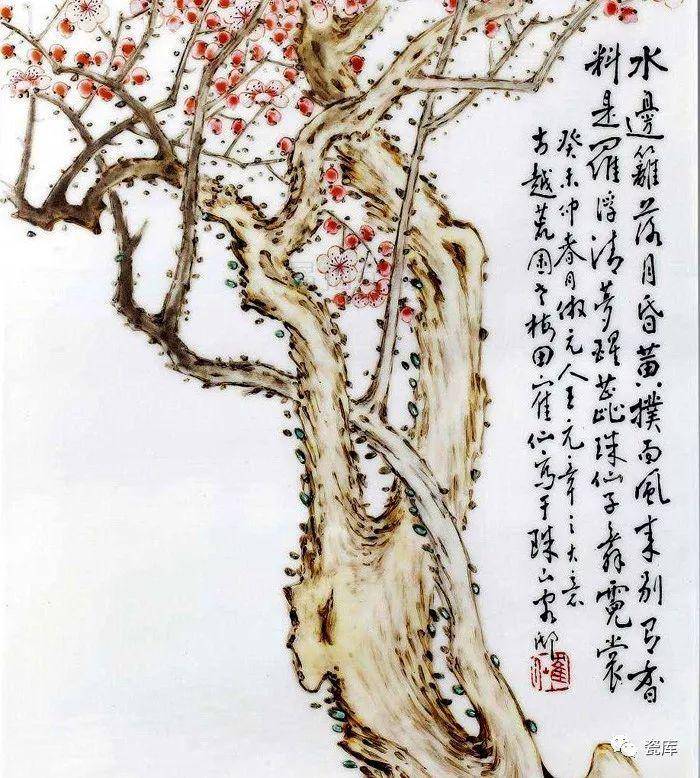 水邊籬落月昏黃撲面風來別有香
料是羅浮清夢醒蕋珠仙子舞霓裳
癸未仲春月倣元人王元章之大意
古越荒園老梅田寉仙寫于珠山客邸
瓷库